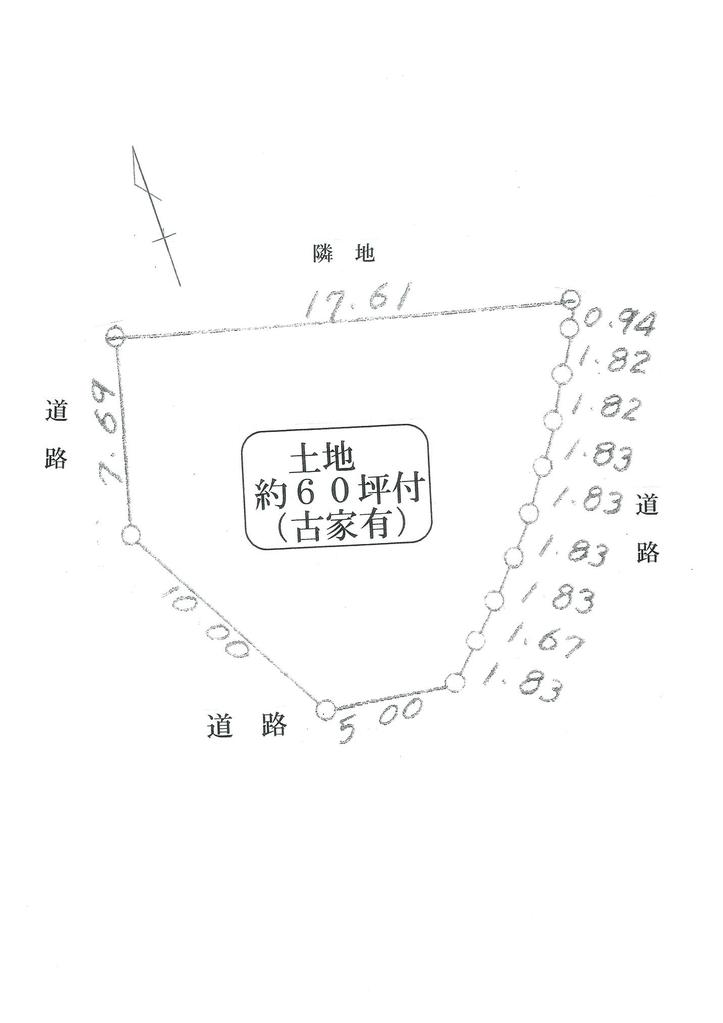 隣地
17.61
0.94
1.82
1.82
1.83
1.83
1.83
1.83
1.67
1.83
道路
7.69
道路
土地
約60坪付
(古家有)
10.00
5.00
道路